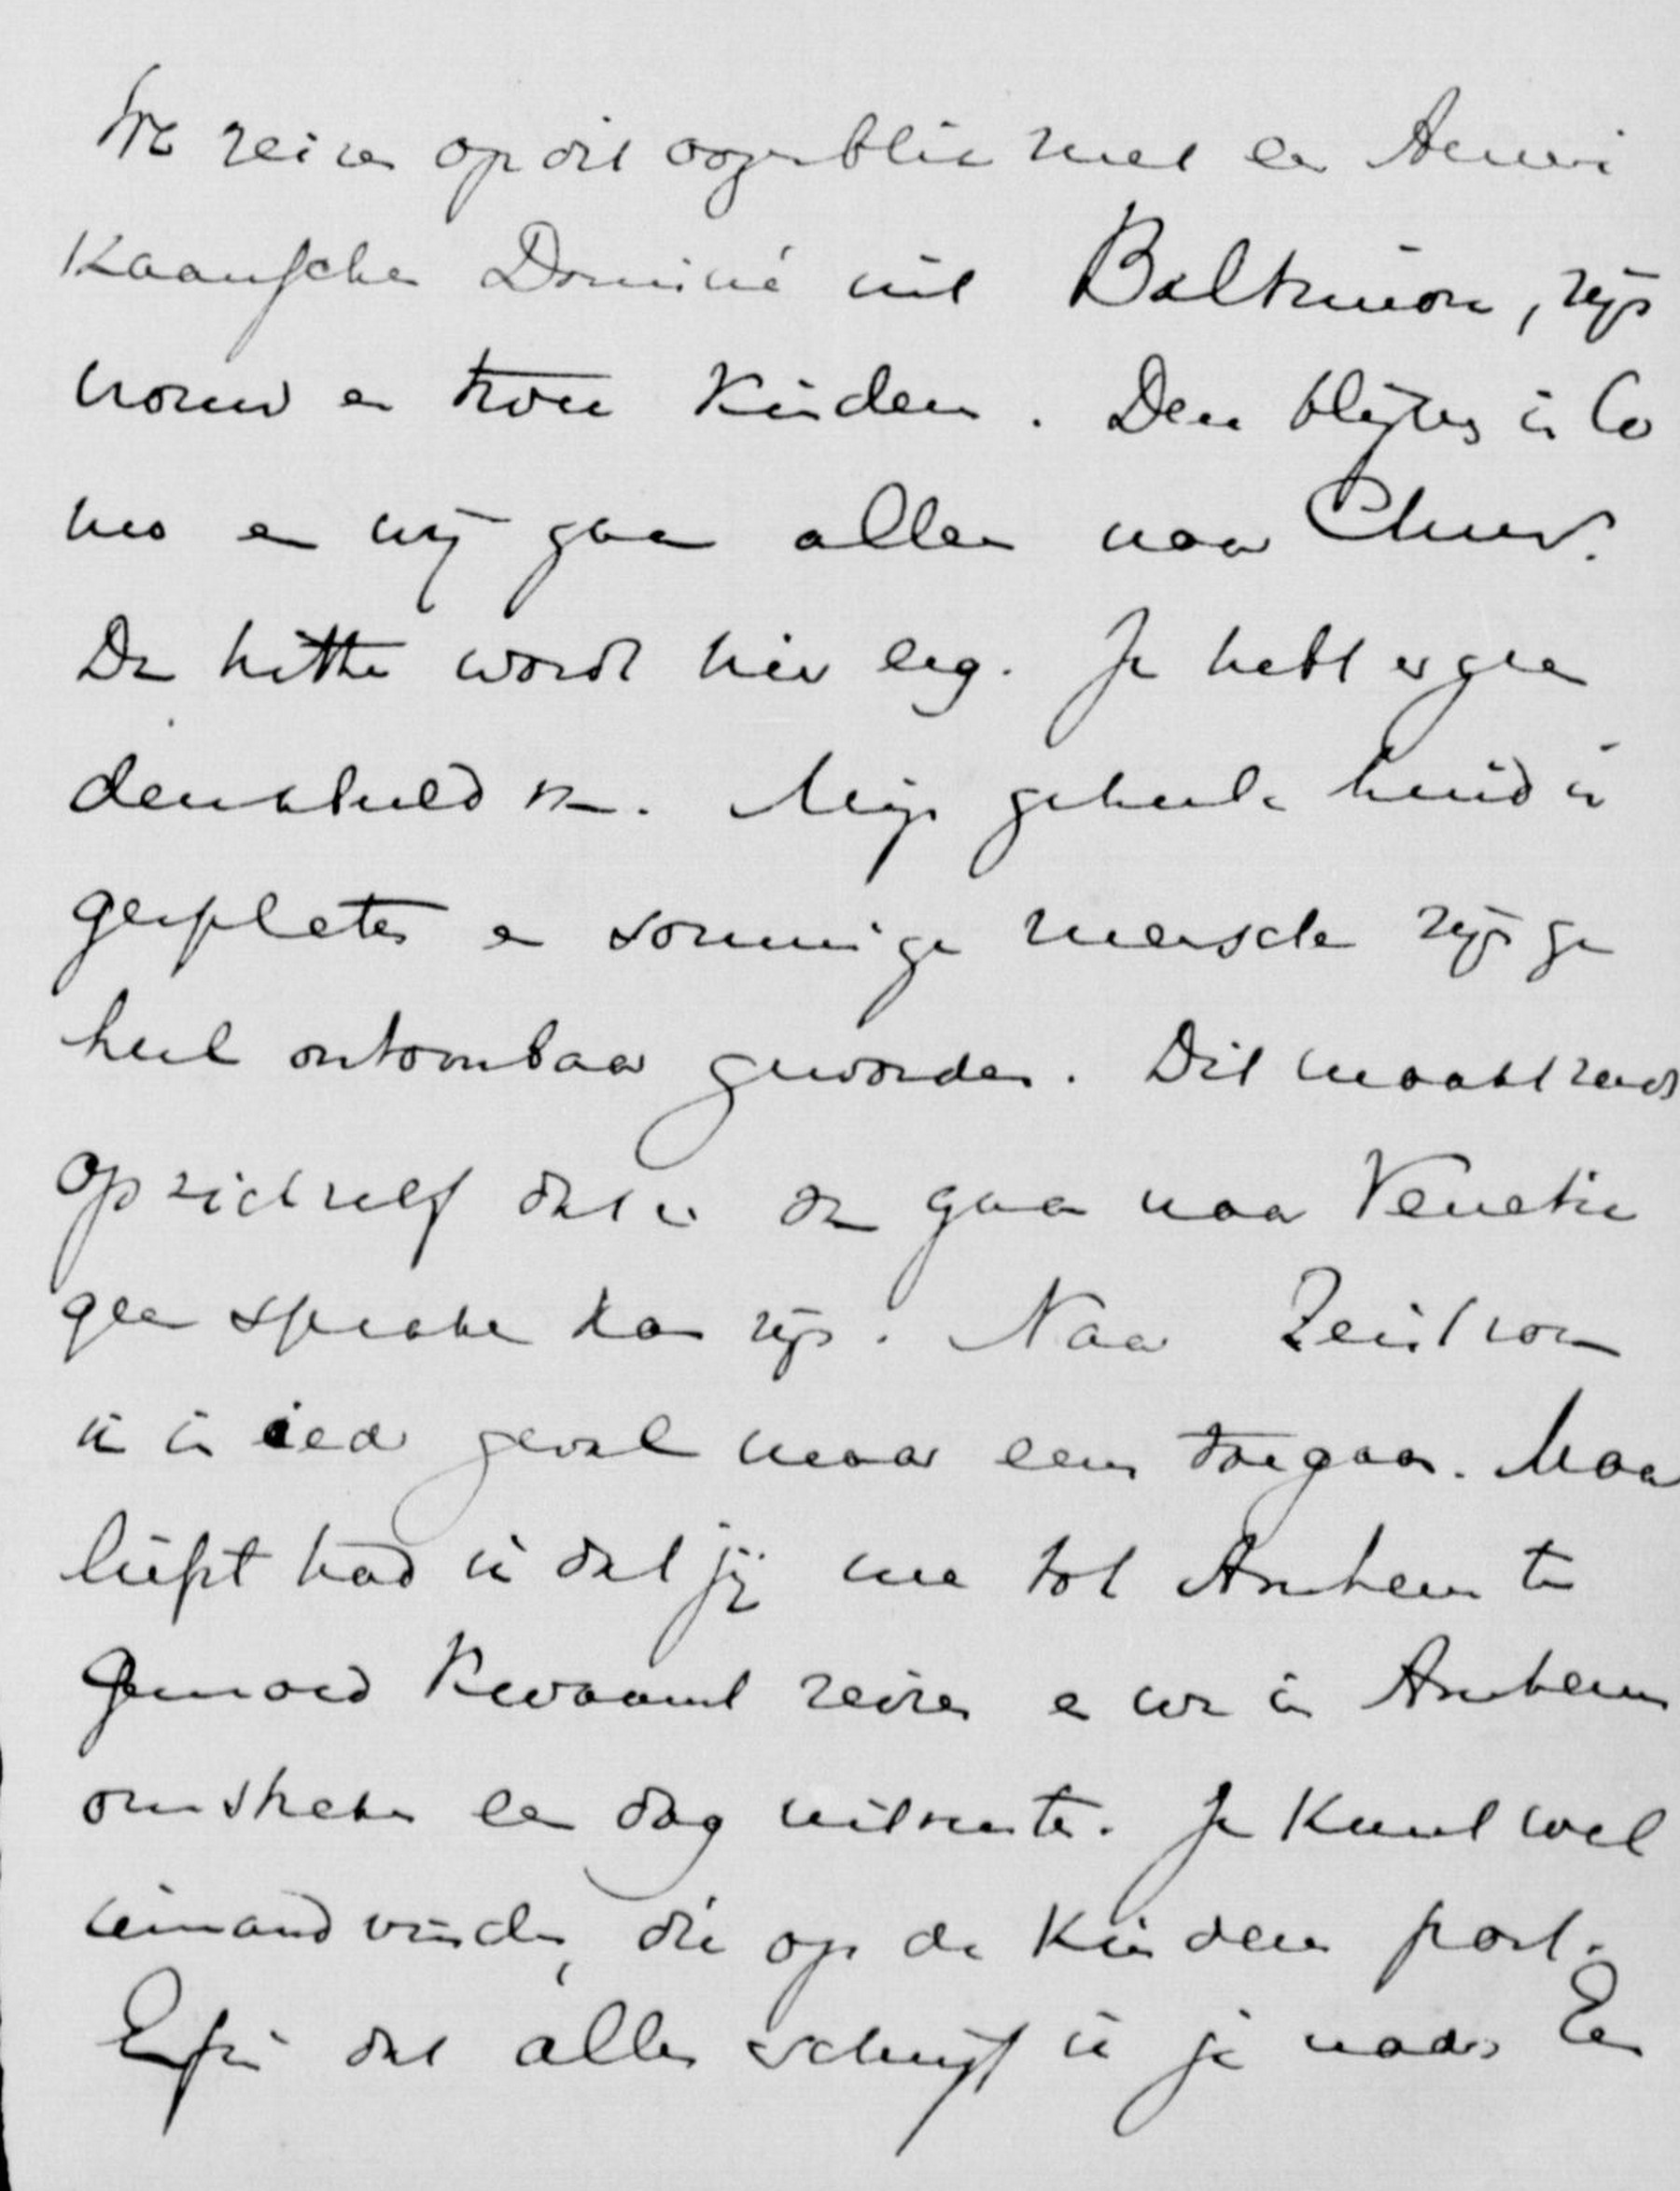 We reizen op dit oogenblik met een Ameri
kaanschen Dominé uit Baltimore, zijn
vrouw en twee kinderen. Deze blijven in Co
mo en wij gaan allen naar Chur.
De hitte wordt hier erg. Je hebt er geen
denkbeeld van. Mijn geheele huid is
gespleten en sommige menschen zijn ge
heel ontoonbaar geworden. Dit maakt reeds
op zichzelf dat er van gaan naar Venetie
geen sprake kan zijn. Naar Zeist zou
ik in ieder geval maar eens toegaan. Maar
liefst had ik dat jij me tot Arnhem te
gemoed kwaamt reizen en we in Arnhem
omstreken een dag uitrustten. Je kunt wel
iemand vinden, die op de kinderen past.
Enfin dat alles schrijf ik je nader. En